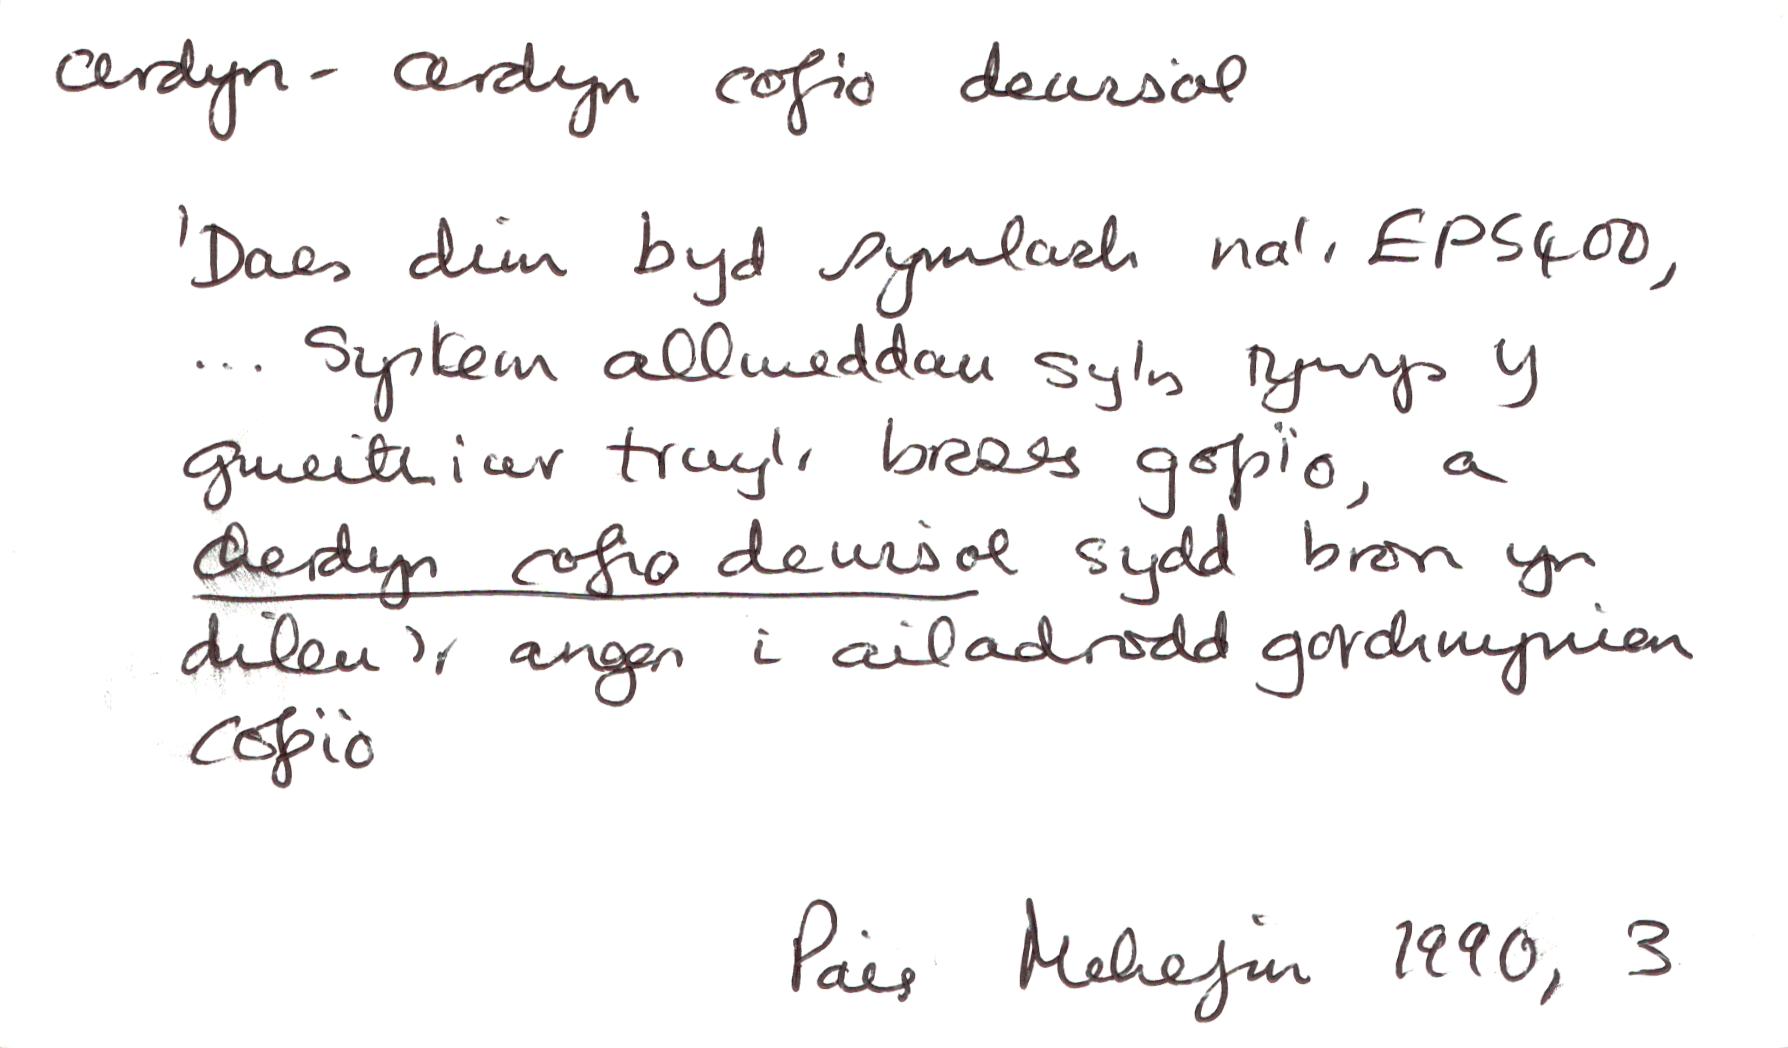 cerdyn - cerdyn cofio deusiol
'Does dim byd symlach na'r EPS400,
... System allweddau sy'n tywys y
gweithiwr trwy'r broses gopïo, a
cherdyn cofio deusiol sydd bron yn
dileu'r angen i ailadrodd gorchmynion
copïo
Pais Mehefin 1990, 3